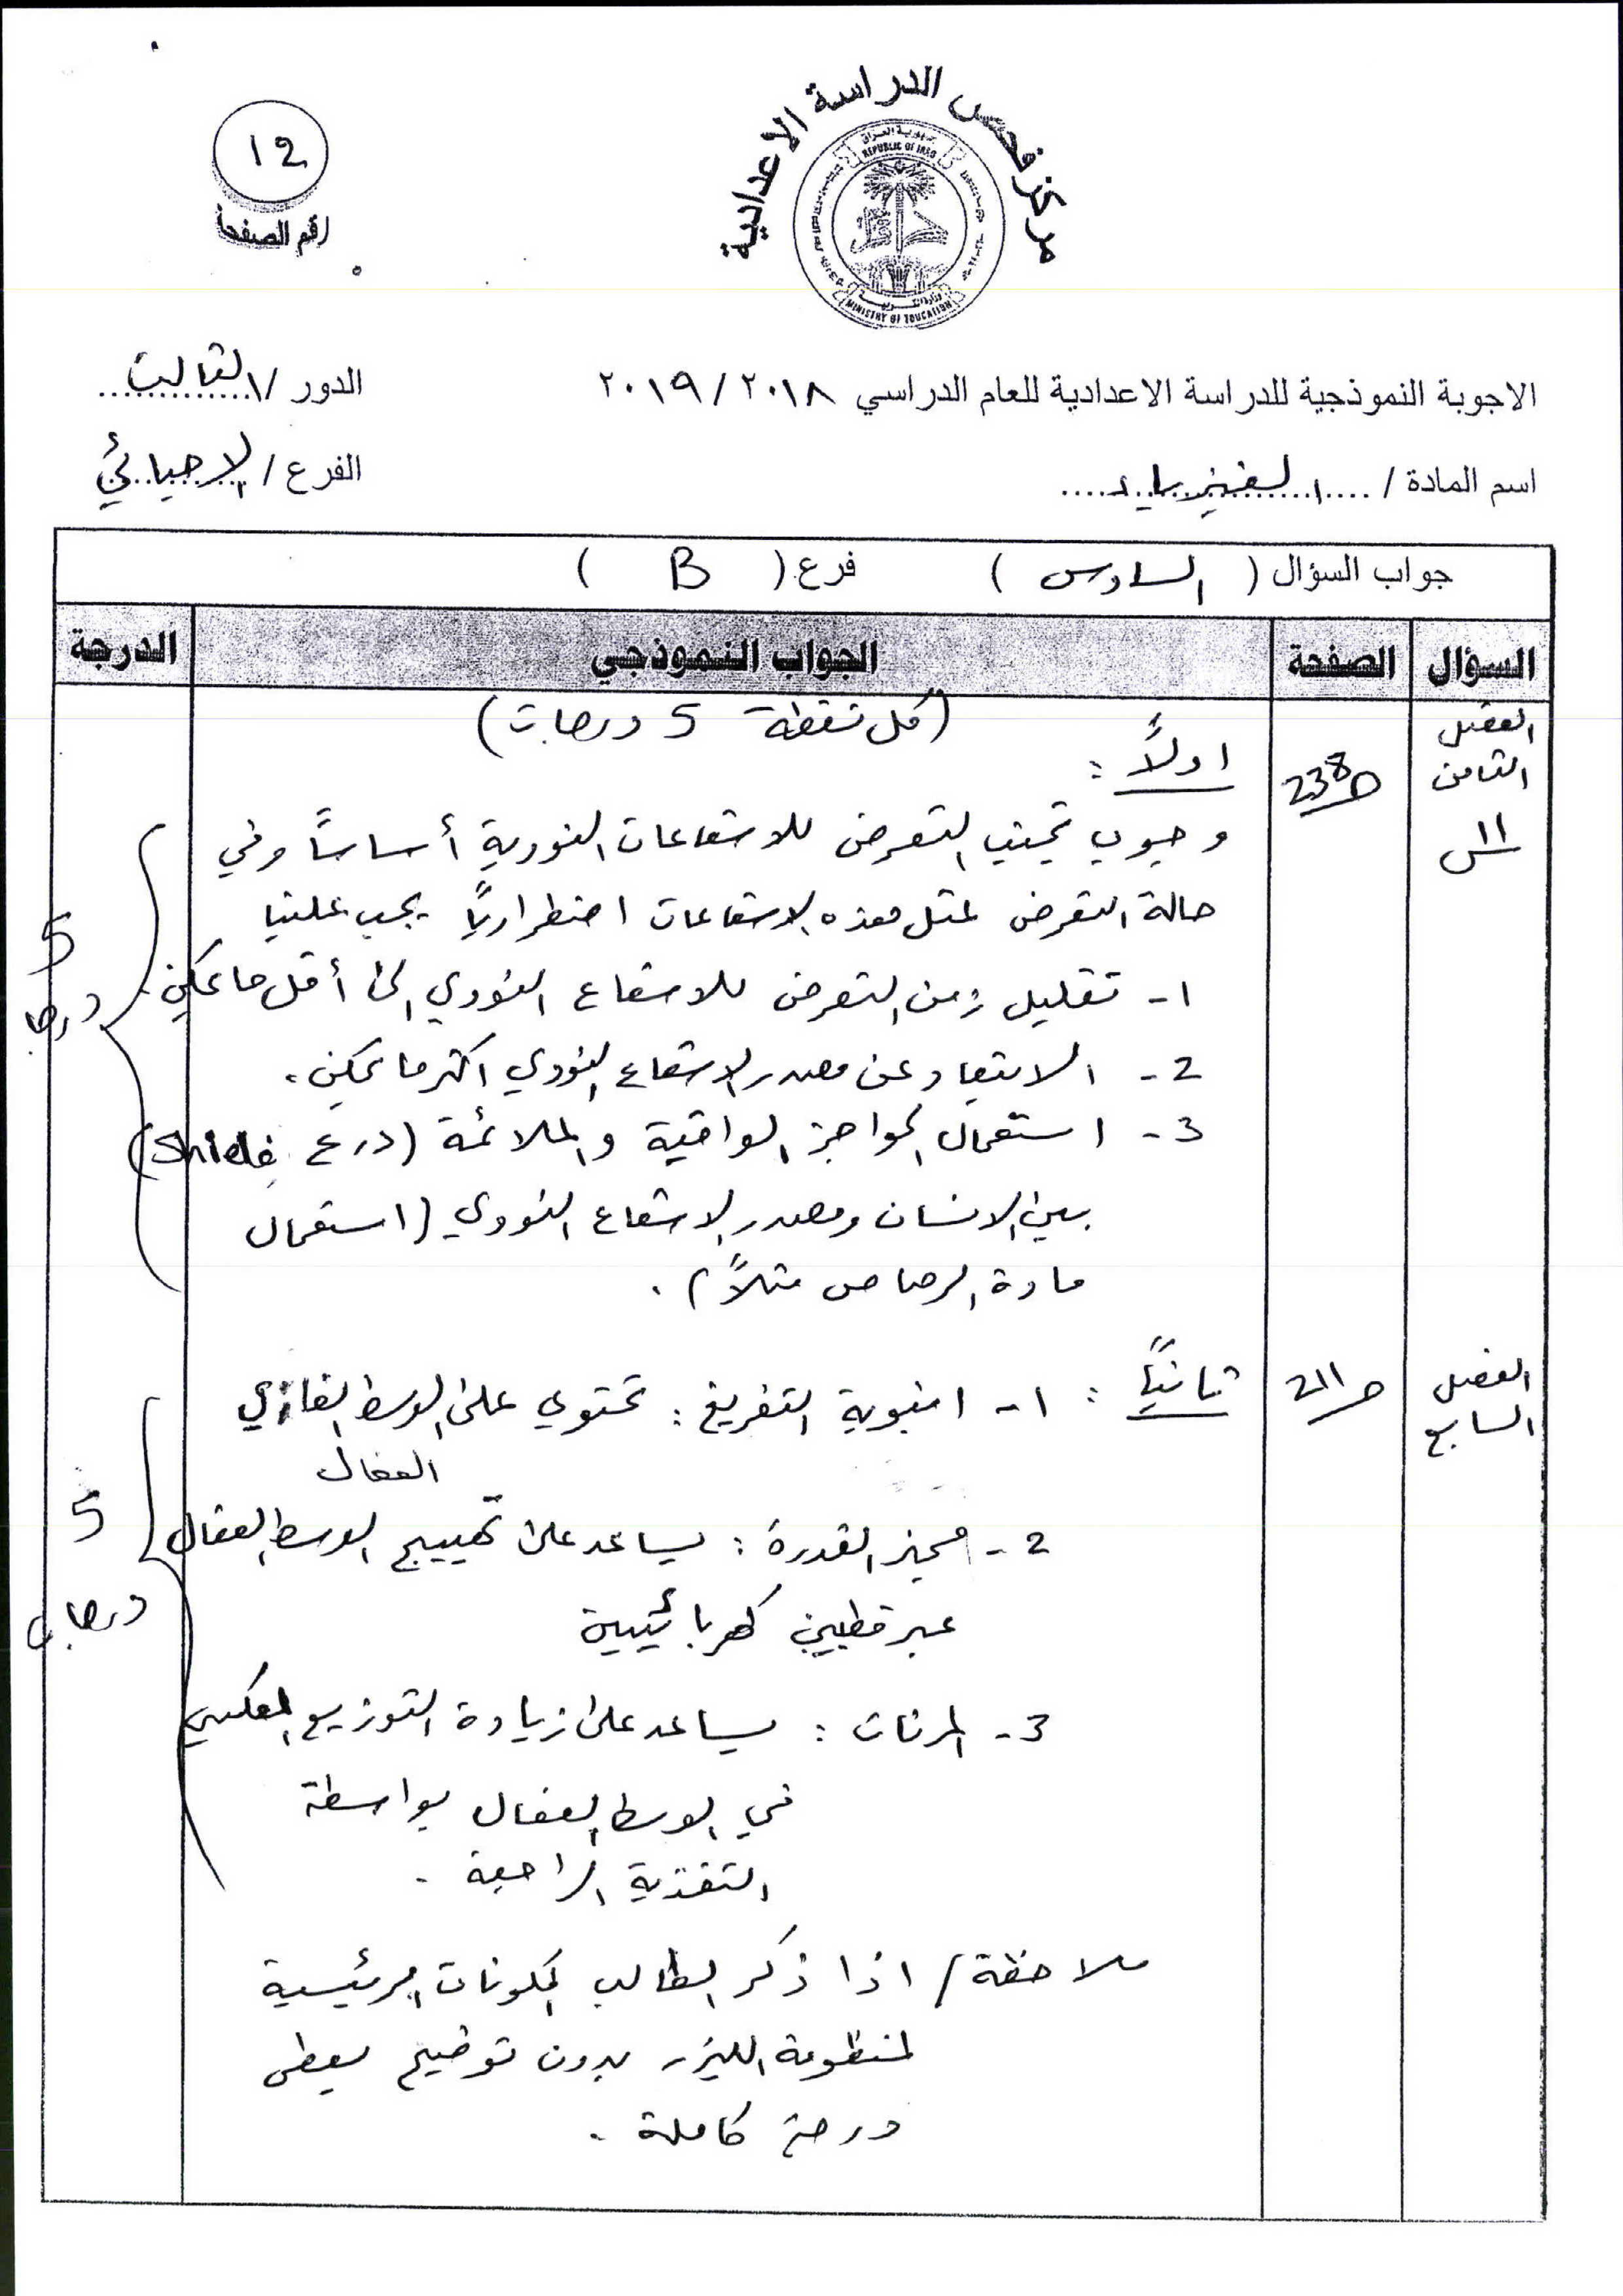 مركز فحص الدراسة الاعدادية
جمهورية العراق
REPUBLIC OF IRAQ
وزارة التربية
MINISTRY OF EDUCATION
12
رقم الصفحة
الاجوبة النموذجية للدراسة الاعدادية للعام الدراسي ٢٠١٨ / ٢٠١٩
الدور / الثالث
اسم المادة / الفيزياء
الفرع / الاحيائي
جواب السؤال ( السادس ) فرع ( B )
السؤال الصفحة الجواب النموذجي الدرجة
(كل نقطة 5 درجات)
الفصل
الثامن
س١١
ص238
اولاً :
وجوب تجنب التعرض للاشعاعات النووية أساساً وفي
حالة التعرض لمثل هذه الاشعاعات اضطرارياً يجب علينا
١- تقليل زمن التعرض للاشعاع النووي الى أقل ما يمكن.
2- الابتعاد عن مصدر الاشعاع النووي اكثر ما يمكن.
3- استعمال الحواجز الواقية والملائمة (درع Shield)
بين الانسان ومصدر الاشعاع النووي (استعمال
مادة الرصاص مثلاً).
5
درجات
الفصل
السابع
ص211
ثانياً : ١- انبوبة التفريغ : تحتوي على الوسط الغازي
الفعال
2- مجهز القدرة : يساعد على تهييج الوسط الفعال
عبر قطبين كهربائيين
3- المرنان : يساعد على زيادة التوزيع المعكس
في الوسط الفعال بواسطة
التغذية الراجعة .
5
درجات
ملاحظة / اذا ذكر الطالب المكونات الرئيسية
لمنظومة الليزر بدون توضيح يعطى
درجة كاملة .